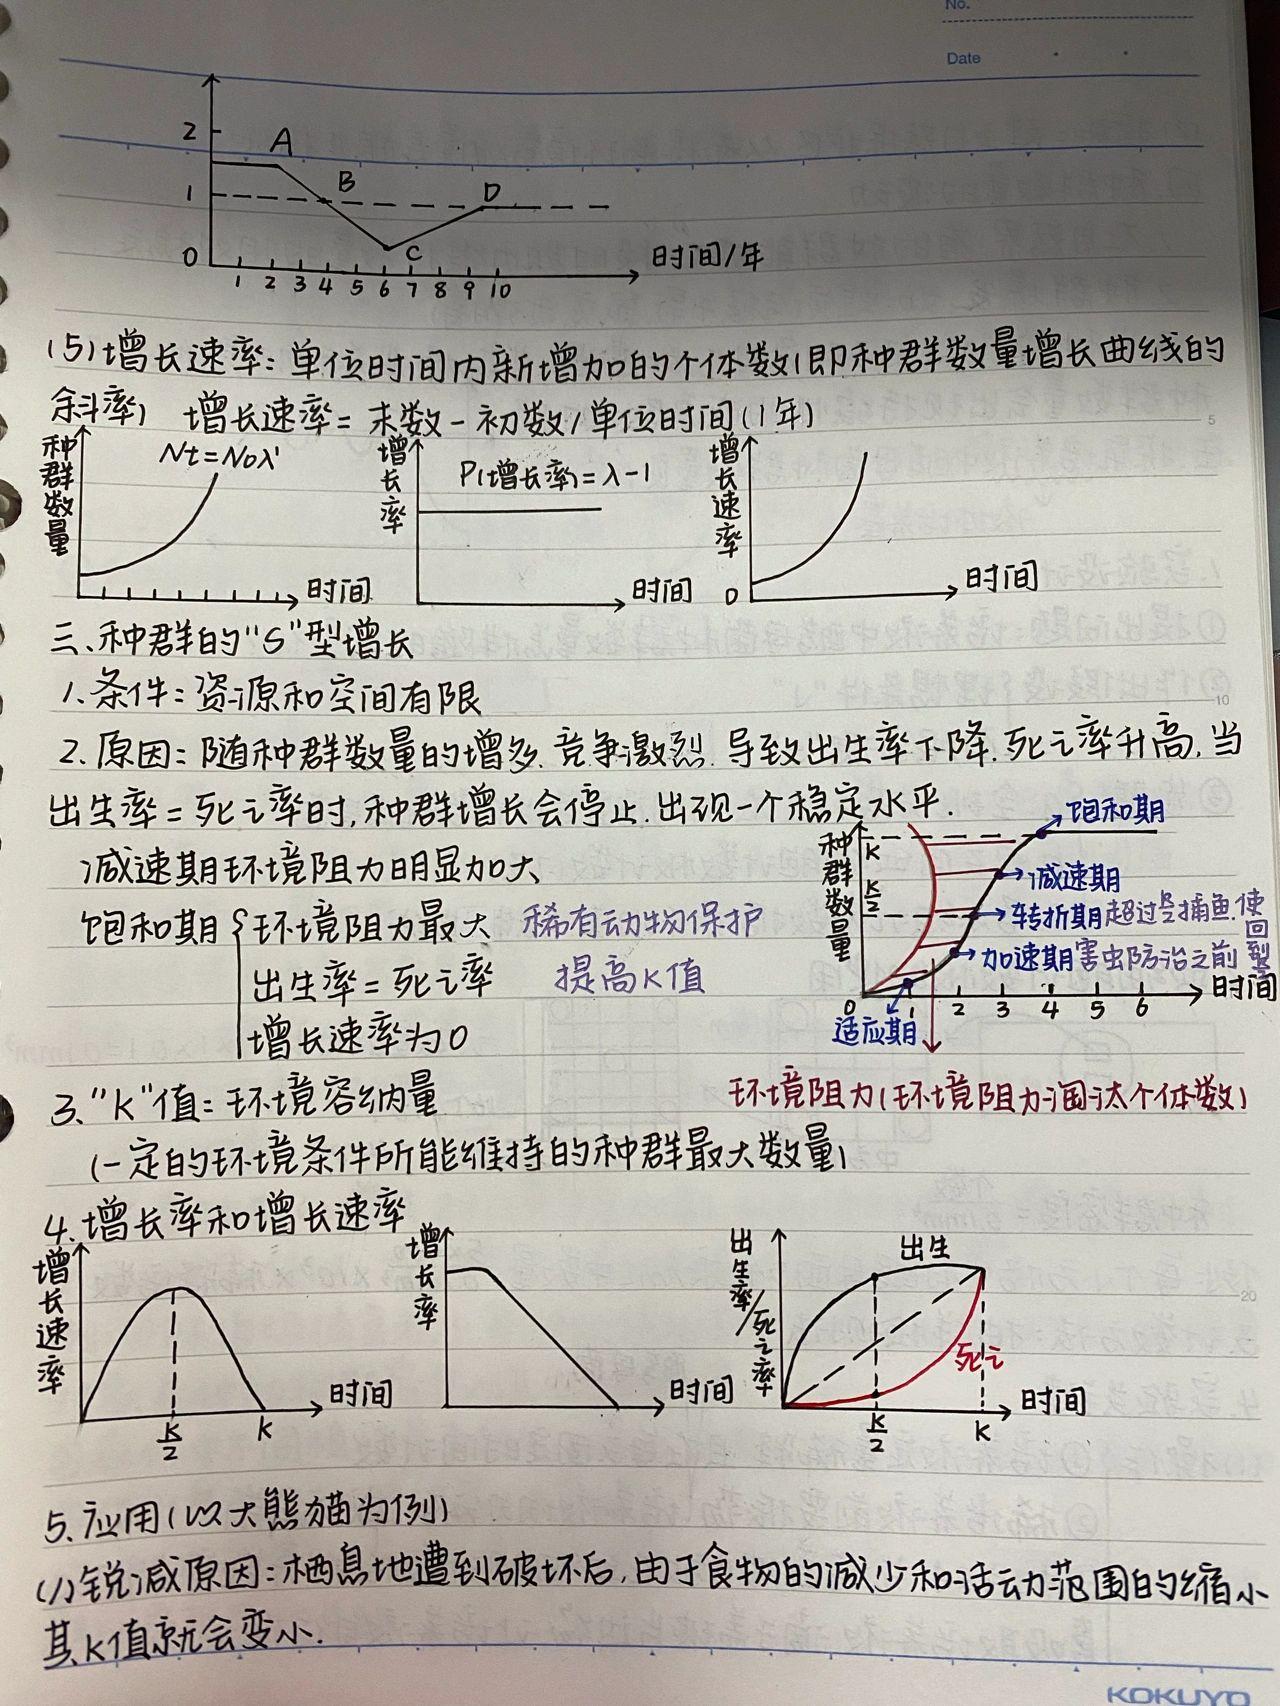 No.
Date
2
A
1
B
D
0
C
时间/年
1 2 3 4 5 6 7 8 9 10
(5)增长速率:单位时间内新增加的个体数(即种群数量增长曲线的
斜率) 增长速率=末数-初数/单位时间(1年)
种群数量
Nt=N0λᵗ
时间
增长率
P(增长率)=λ-1
时间
增长速率
0
时间
三、种群的"S"型增长
1.条件:资源和空间有限
2.原因:随种群数量的增多.竞争激烈.导致出生率下降.死亡率升高,当
出生率=死亡率时,种群增长会停止.出现一个稳定水平.
减速期环境阻力明显加大
饱和期{环境阻力最大 稀有动物保护
出生率=死亡率 提高K值
增长速率为0
种群数量
K
K/2
0
1 2 3 4 5 6
时间
饱和期
减速期
转折期 超过K/2捕鱼,使回到K/2
加速期 害虫防治之前
适应期
环境阻力(环境阻力淘汰个体数)
3."K"值:环境容纳量
(一定的环境条件所能维持的种群最大数量)
4.增长率和增长速率
增长速率
K/2
K
时间
增长率
时间
出生率/死亡率
出生
死亡
K/2
K
时间
5.应用(以大熊猫为例)
(1)锐减原因:栖息地遭到破坏后,由于食物的减少和活动范围的缩小
其K值就会变小.
5
10
20
KOKUYO